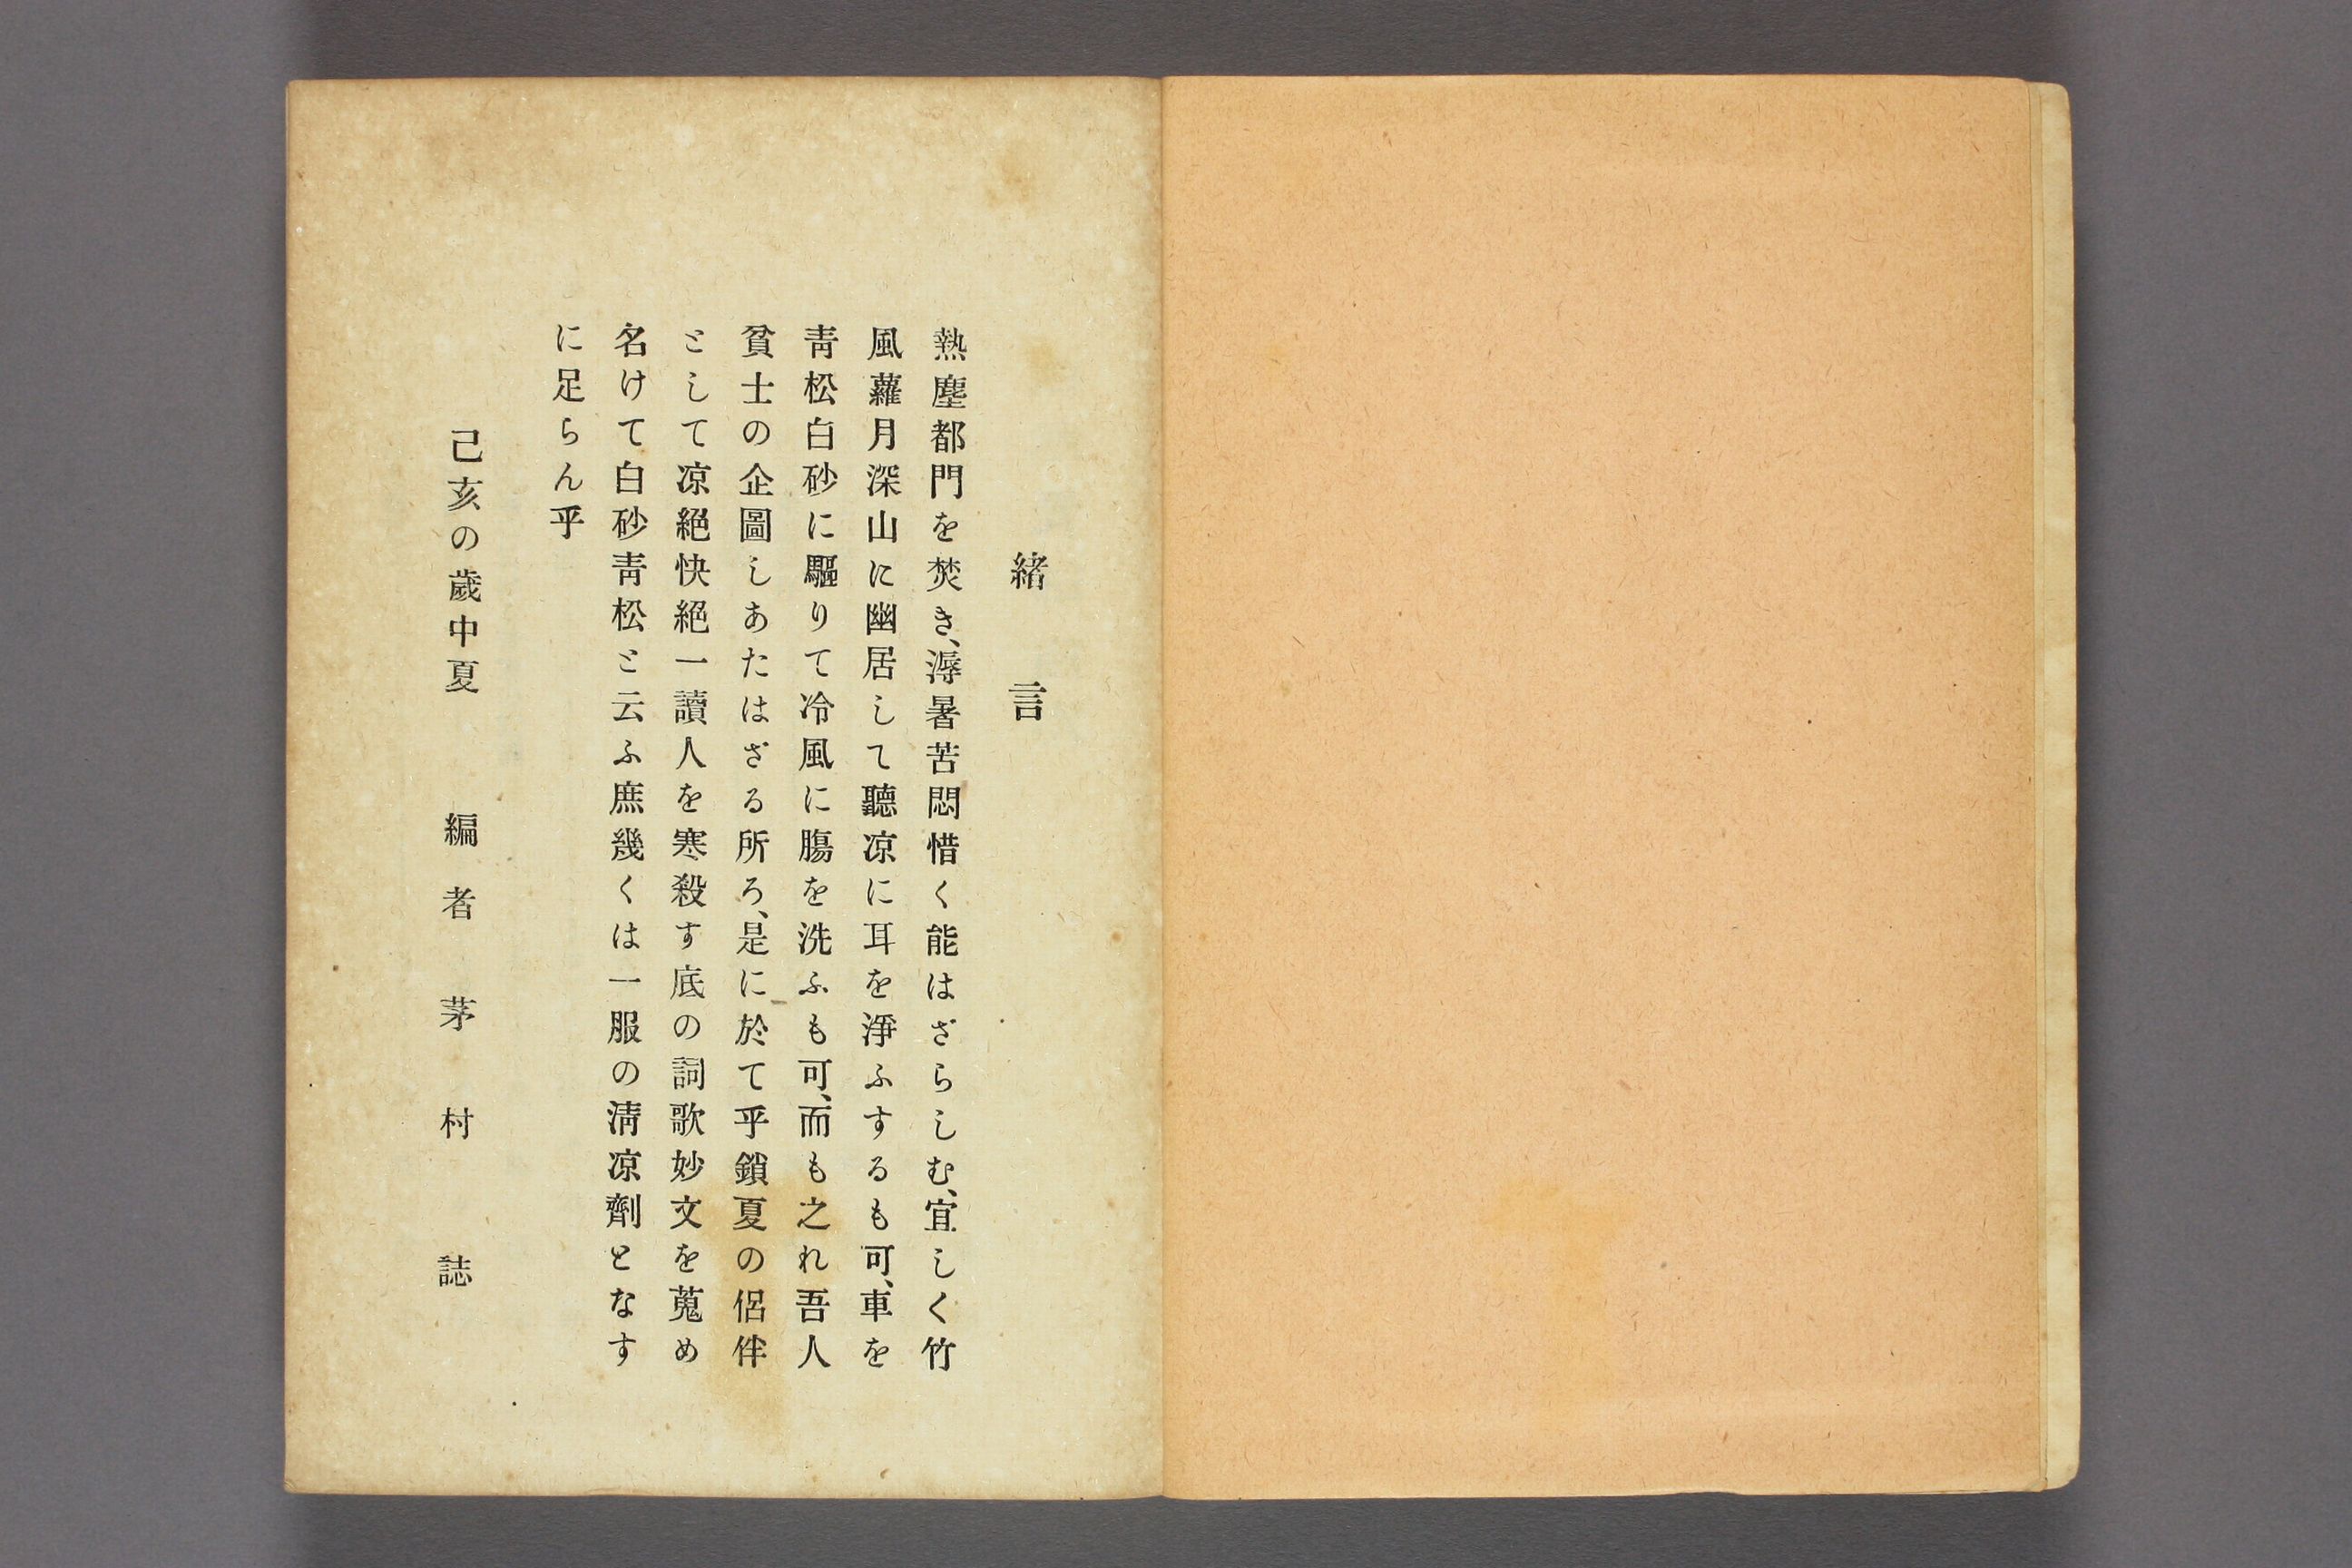 緒言
熱塵都門を焚き、溽暑苦悶惜く能はざらしむ、宜しく竹
風蘿月深山に幽居して聽凉に耳を淨ふするも可、車を
靑松白砂に驅りて冷風に膓を洗ふも可、而も之れ吾人
貧士の企圖しあたはざる所ろ、是に於て乎鎖夏の侶伴
として凉絕快絕一讀人を寒殺す底の詞歌妙文を蒐め
名けて白砂靑松と云ふ庶幾くは一服の淸凉劑となす
に足らん乎
己亥の歲中夏
編者茅村誌